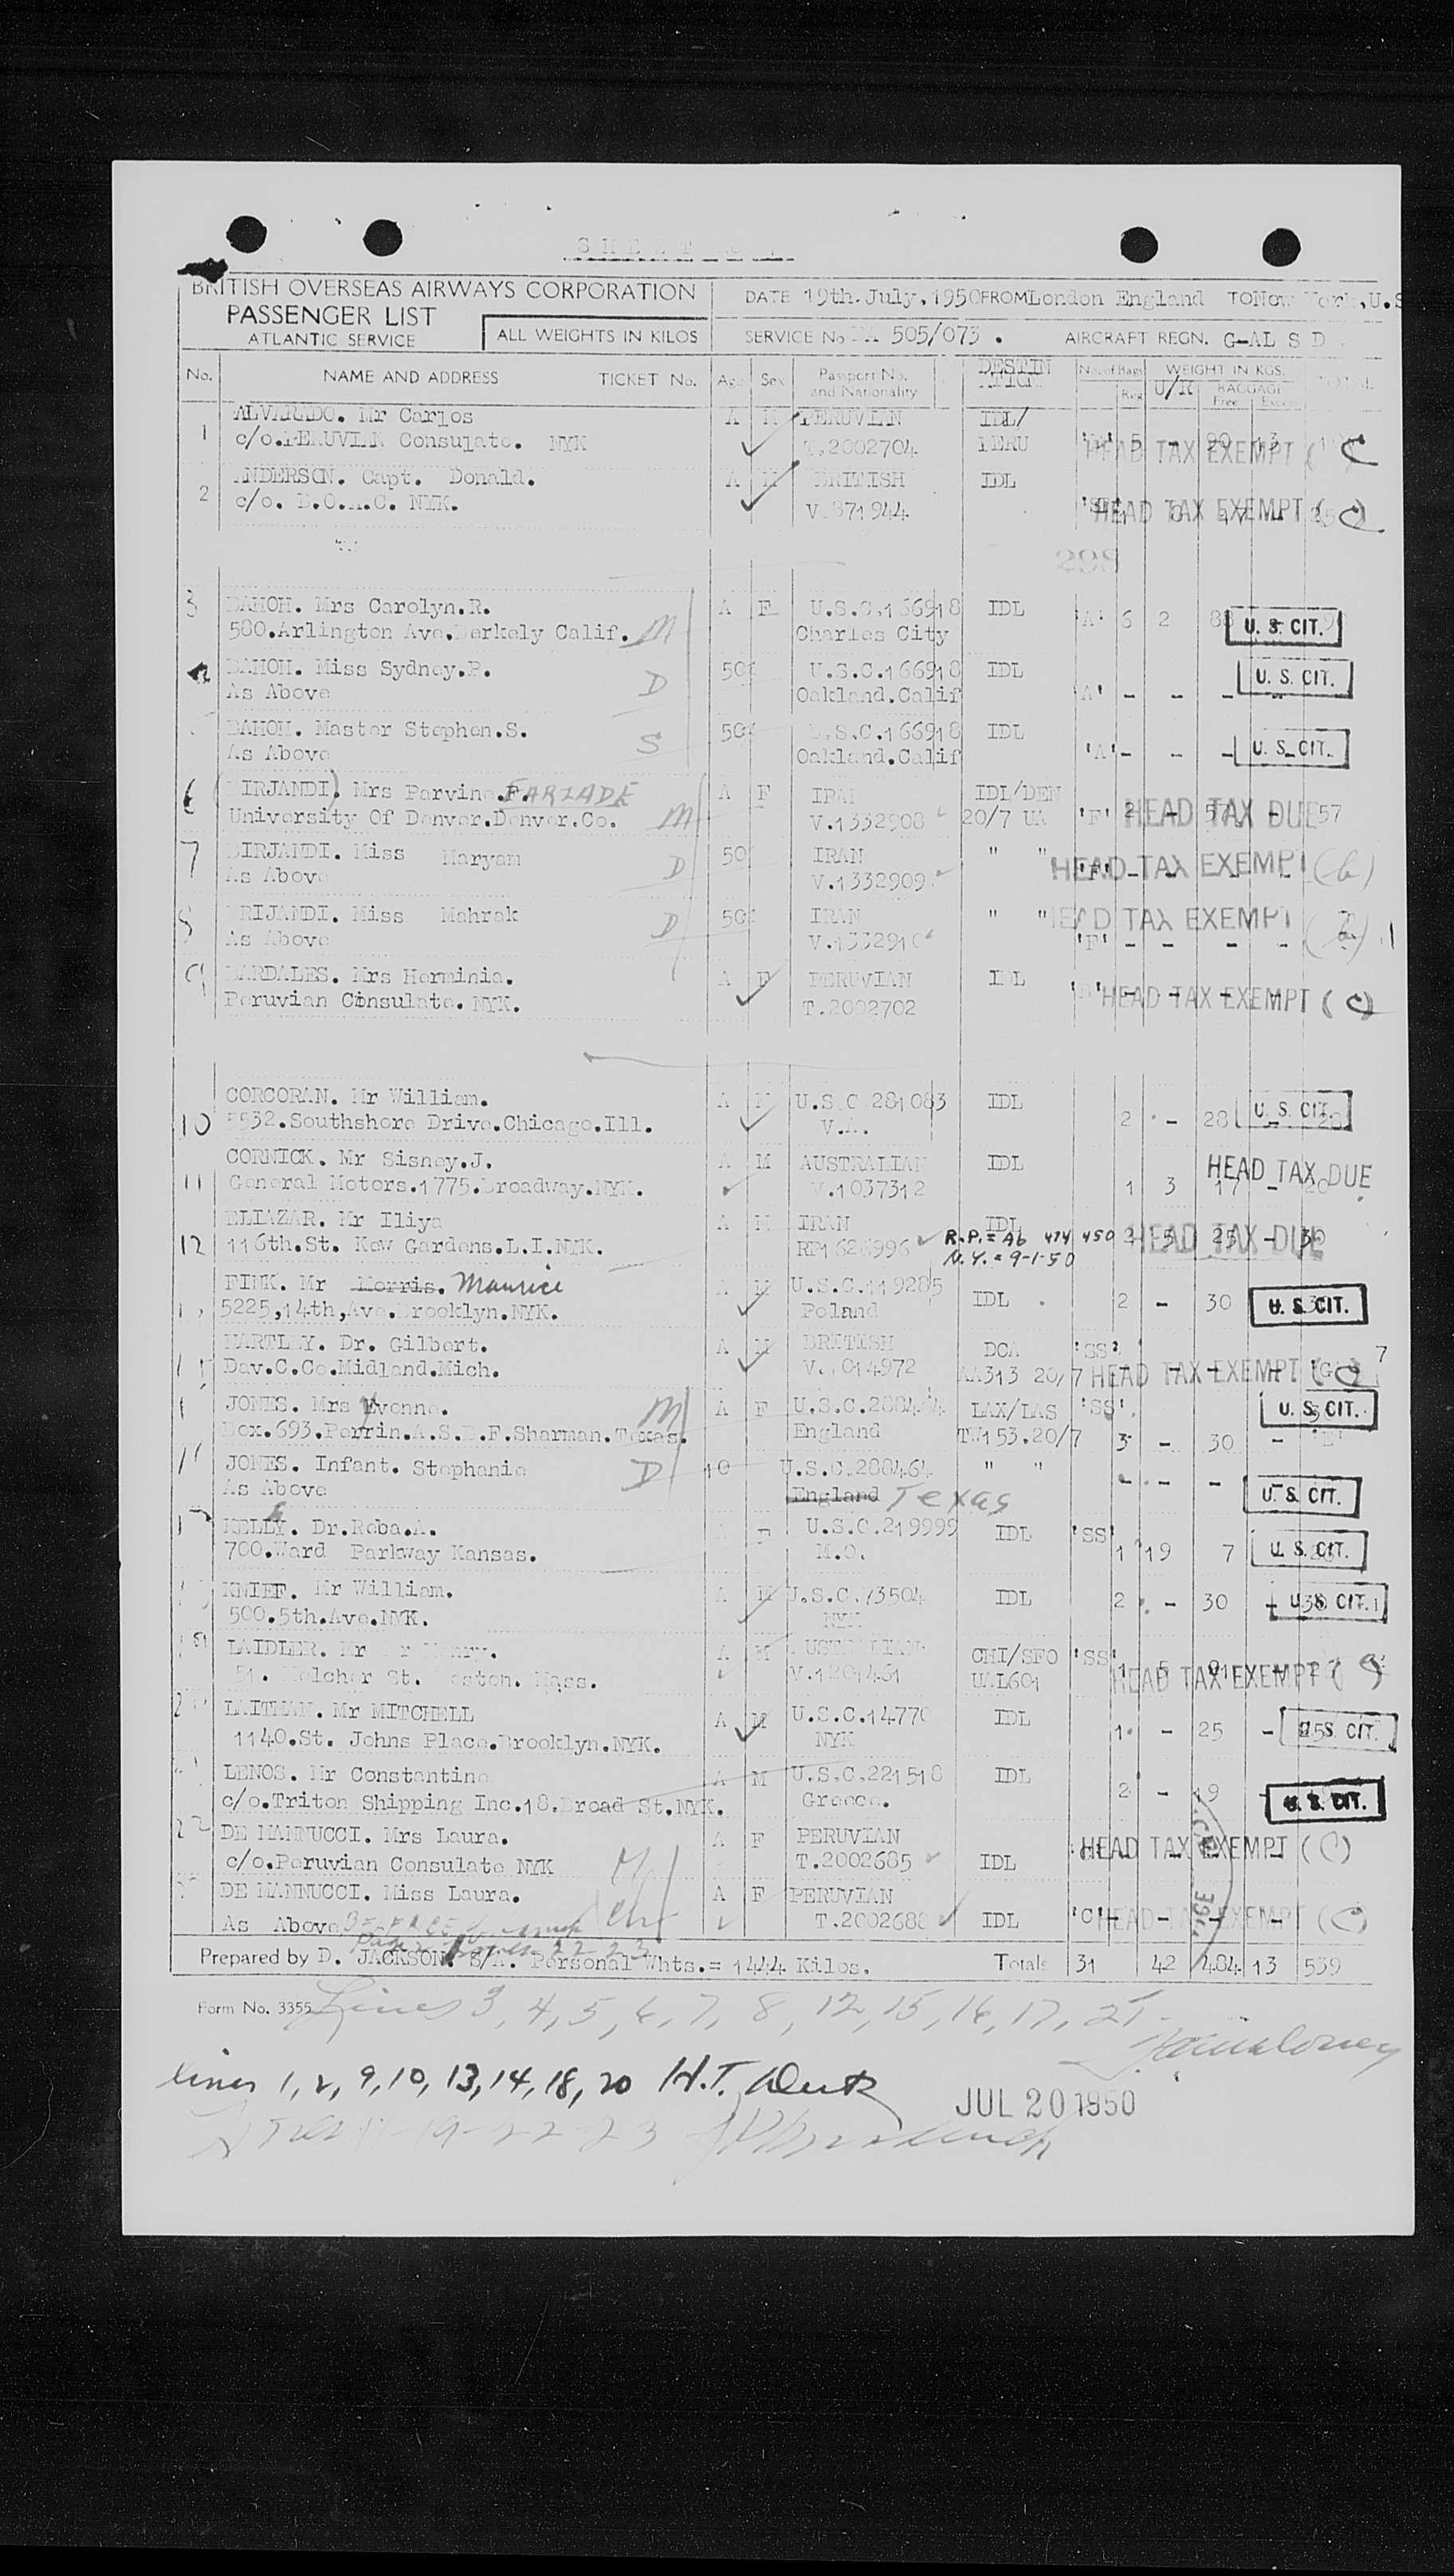 BRITISH OVERSEAS AIRWAYS CORPORATION
PASSENGER LIST
ATLANTIC SERVICE
ALL WEIGHTS IN KILOS
DATE 19th.July,1950 FROM London England TO New York, U.S
SERVICE No 505/073 . AIRCRAFT REGN. G-AL S D
No. NAME AND ADDRESS TICKET No. Age Sex Passport No. and Nationality DESTINATION No. of Bags Reg U/R WEIGHT IN KGS. BAGGAGE Free Excess TOTAL
1 ALVARADO. Mr Carlos A M PERUVIAN IDL/
c/o.PERUVIAN Consulate. NYK T.2002704 PERU HEAD TAX EXEMPT (C)
2 ANDERSON. Capt. Donald. A M BRITISH IDL
c/o. B.O.A.C. NYK. V.871944 HEAD TAX EXEMPT (C)
298
3 DAHOH. Mrs Carolyn.R. A F U.S.C.166918 IDL 'A' 6 2 U. S. CIT.
580.Arlington Ave.Berkely Calif. M Charles City
DAHOH. Miss Sydney.P. 50% U.S.C.166918 IDL U. S. CIT.
As Above D Oakland.Calif 'A' - - -
DAHOH. Master Stephen.S. 50% U.S.C.166918 IDL
As Above S Oakland.Calif 'A' - - - U. S. CIT.
6 (BIRJANDI) Mrs Parvine.F. FARZADE A F IRAN IDL/DEN
University Of Denver.Denver.Co. M V.1332908 20/7 UA 'F' 2 - 57 - 57 HEAD TAX DUE
7 BIRJANDI. Miss Maryam 50 IRAN " "
As Above D V.1332909 'F' - - - - HEAD TAX EXEMPT (b)
8 BRIJANDI. Miss Mahrak D 50% IRAN " " HEAD TAX EXEMPT
As Above V.1332910 'F' - - - -
9 BARDALES. Mrs Herminia. A F PERUVIAN IDL
Peruvian Consulate. NYK. T.2002702 HEAD TAX EXEMPT (C)
CORCORAN. Mr William. A M U.S.C.281083 IDL
10 5532.Southshore Drive.Chicago.Ill. V.A. 2 - 28 - 28 U. S. CIT.
CORNICK. Mr Sisney.J. A M AUSTRALIAN IDL HEAD TAX DUE
11 General Motors.1775.Broadway.NYK. V.1037312 1 3 17 - 20
ELIAZAR. Mr Iliya A M IRAN IDL
12 116th.St. Kew Gardens.L.I.NYK. R.P.= Ab 474 450 5 25 - 30 HEAD TAX DUE
N.Y. = 9-1-50
FINK. Mr Morris. Maurice A M U.S.C.119285
5225,14th,Ave.Brooklyn.NYK. Poland IDL 2 - 30 U. S. CIT.
HARTLEY. Dr. Gilbert. A M BRITISH DCA 'SS'
Dav.C.Co.Midland.Mich. AA313 20/7 HEAD TAX EXEMPT
JONES. Mrs Yvonne. M A F U.S.C.288464 LAX/LAS 'SS' U. S. CIT.
Box.693.Perrin.A.S.B.F.Sharman.Texas. England TW153.20/7 3 - 30 -
JONES. Infant. Stephanie D 10 U.S.C.288464 " " - - -
As Above England Texas U. S. CIT.
KELLY. Dr.Reba.A. F U.S.C.219999 IDL 'SS'
700.Ward Parkway Kansas. M.O. 1 19 7 U. S. CIT.
KNIEF. Mr William. A M U.S.C.73504 IDL 2 - 30 - 30 U. S. CIT.
500.5th.Ave.NYK. NYK
LAIDLER. Mr Henry. A M AUSTRALIAN CHI/SFO 'SS'
St. Boston. Mass. UAL601 HEAD TAX EXEMPT
LAITMAN. Mr MITCHELL A M U.S.C.14770 IDL 1 - 25 - 25 U. S. CIT.
1140.St. Johns Place.Brooklyn.NYK. NYK
LENOS. Mr Constantine A M U.S.C.221518 IDL
c/o.Triton Shipping Inc.18.Broad St.NYK. Greece. 2 - 19 U. S. CIT.
22 DE MANNUCCI. Mrs Laura. A F PERUVIAN HEAD TAX EXEMPT (C)
c/o.Peruvian Consulate NYK M T.2002685 IDL
DE MANNUCCI. Miss Laura. A F PERUVIAN
As Above T.2002688 IDL 'C' - - - - HEAD TAX EXEMPT (C)
Prepared by D. JACKSON. S/A. Personal Whts.= 1444 Kilos. Totals 31 42 484 13 539
Form No. 3355
Lines 3, 4, 5, 6, 7, 8, 12, 15, 16, 17, 21
lines 1, 2, 9, 10, 13, 14, 18, 20 H.T.
JUL 20 1950
11-19-22-23